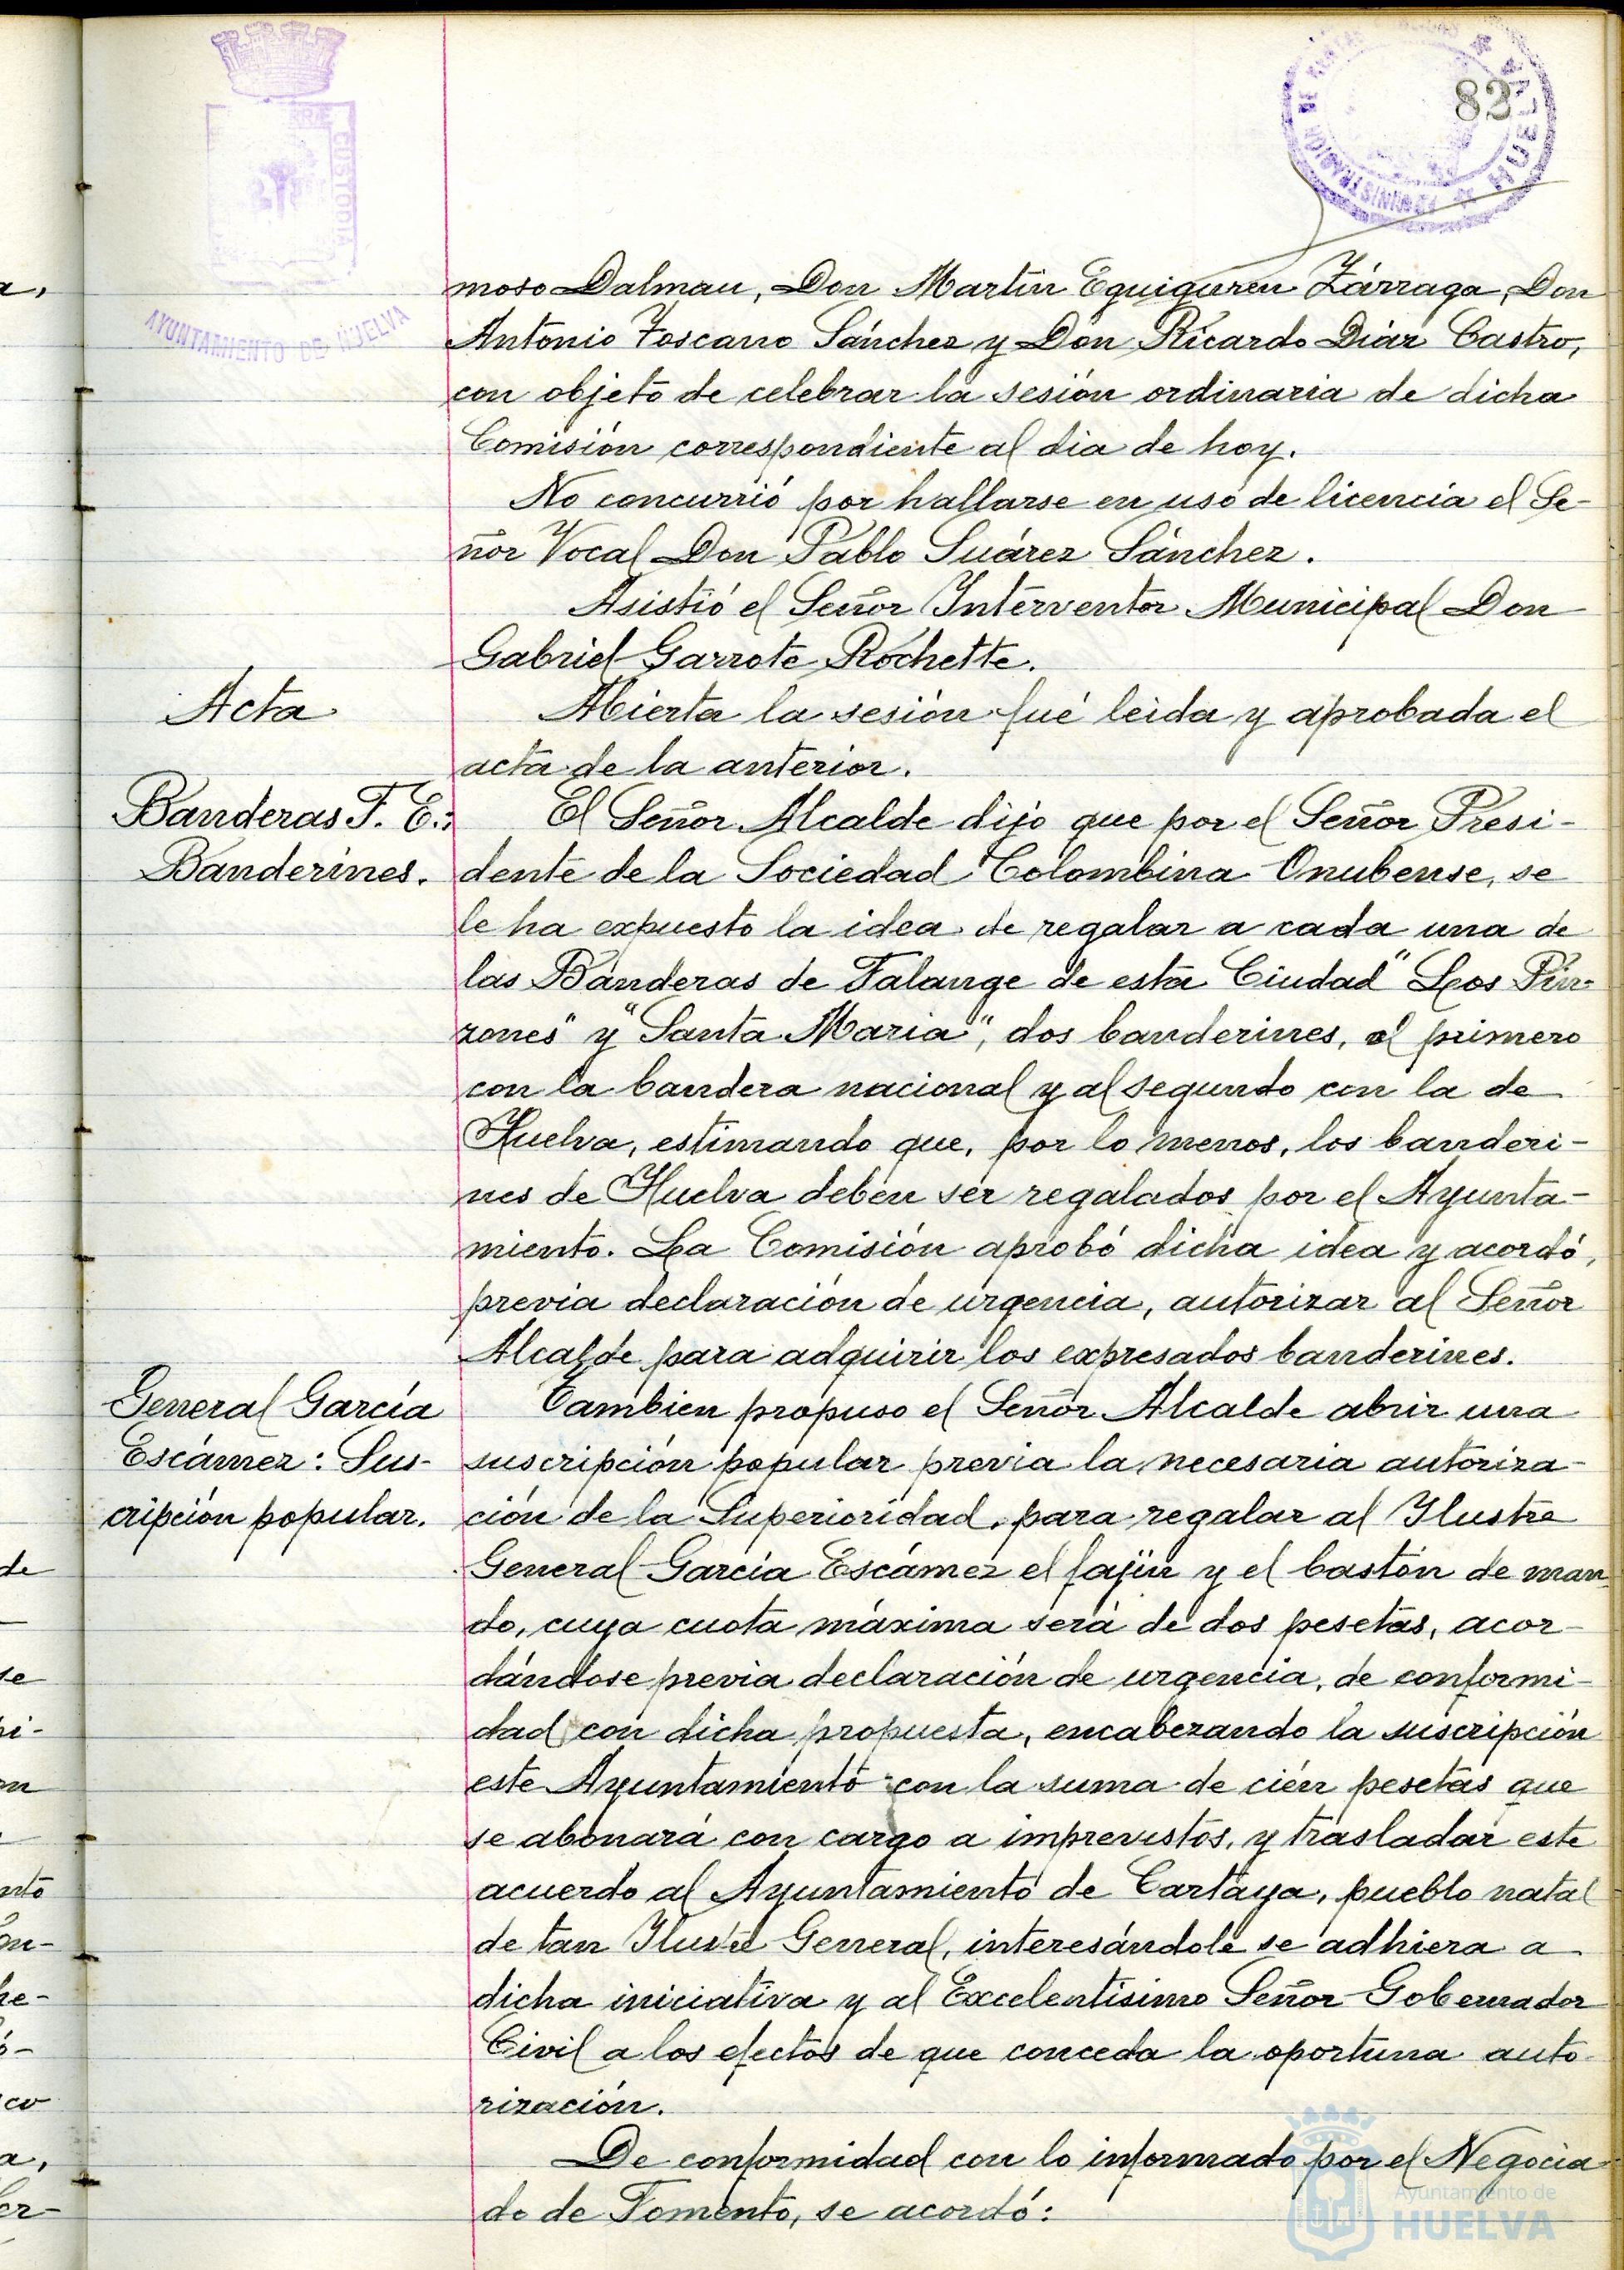 82
AYUNTAMIENTO DE HUELVA
moso Dalmau, Don Martín Eguiguren Zárraga, Don
Antonio Toscano Sánchez y Don Ricardo Díaz Castro,
con objeto de celebrar la sesión ordinaria de dicha
Comisión correspondiente al dia de hoy.
No concurrió por hallarse en uso de licencia el Se-
ñor Vocal Don Pablo Suárez Sánchez.
Asistió el Señor Interventor Municipal Don
Gabriel Garrote Rochette.
Acta
Abierta la sesión fué leida y aprobada el
acta de la anterior.
Banderas F. E.:
Banderines.
El Señor Alcalde dijo que por el Señor Presi-
dente de la Sociedad Colombina Onubense, se
le ha expuesto la idea de regalar a cada una de
las Banderas de Falange de esta Ciudad "Los Pin-
zones" y "Santa Maria", dos banderines, el primero
con la bandera nacional y al segundo con la de
Huelva, estimando que, por lo menos, los banderi-
nes de Huelva deben ser regalados por el Ayunta-
miento. La Comisión aprobó dicha idea y acordó,
previa declaración de urgencia, autorizar al Señor
Alcalde para adquirir los expresados banderines.
General García
Escámez: Sus-
cripción popular.
Tambien propuso el Señor Alcalde abrir una
suscripción popular previa la necesaria autoriza-
ción de la Superioridad, para regalar al Ilustre
General García Escámez el fajín y el bastón de man
do, cuya cuota máxima será de dos pesetas, acor-
dándose previa declaración de urgencia, de conformi-
dad con dicha propuesta, encabezando la suscripción
este Ayuntamiento con la suma de cién pesetas que
se abonará con cargo a imprevistos, y trasladar este
acuerdo al Ayuntamiento de Cartaya, pueblo natal
de tan Ilustre General, interesándole se adhiera a
dicha iniciativa y al Excelentísimo Señor Gobernador
Civil a los efectos de que conceda la oportuna auto-
rización.
De conformidad con lo informado por el Negocia-
do de Fomento, se acordó:
Ayuntamiento de
HUELVA